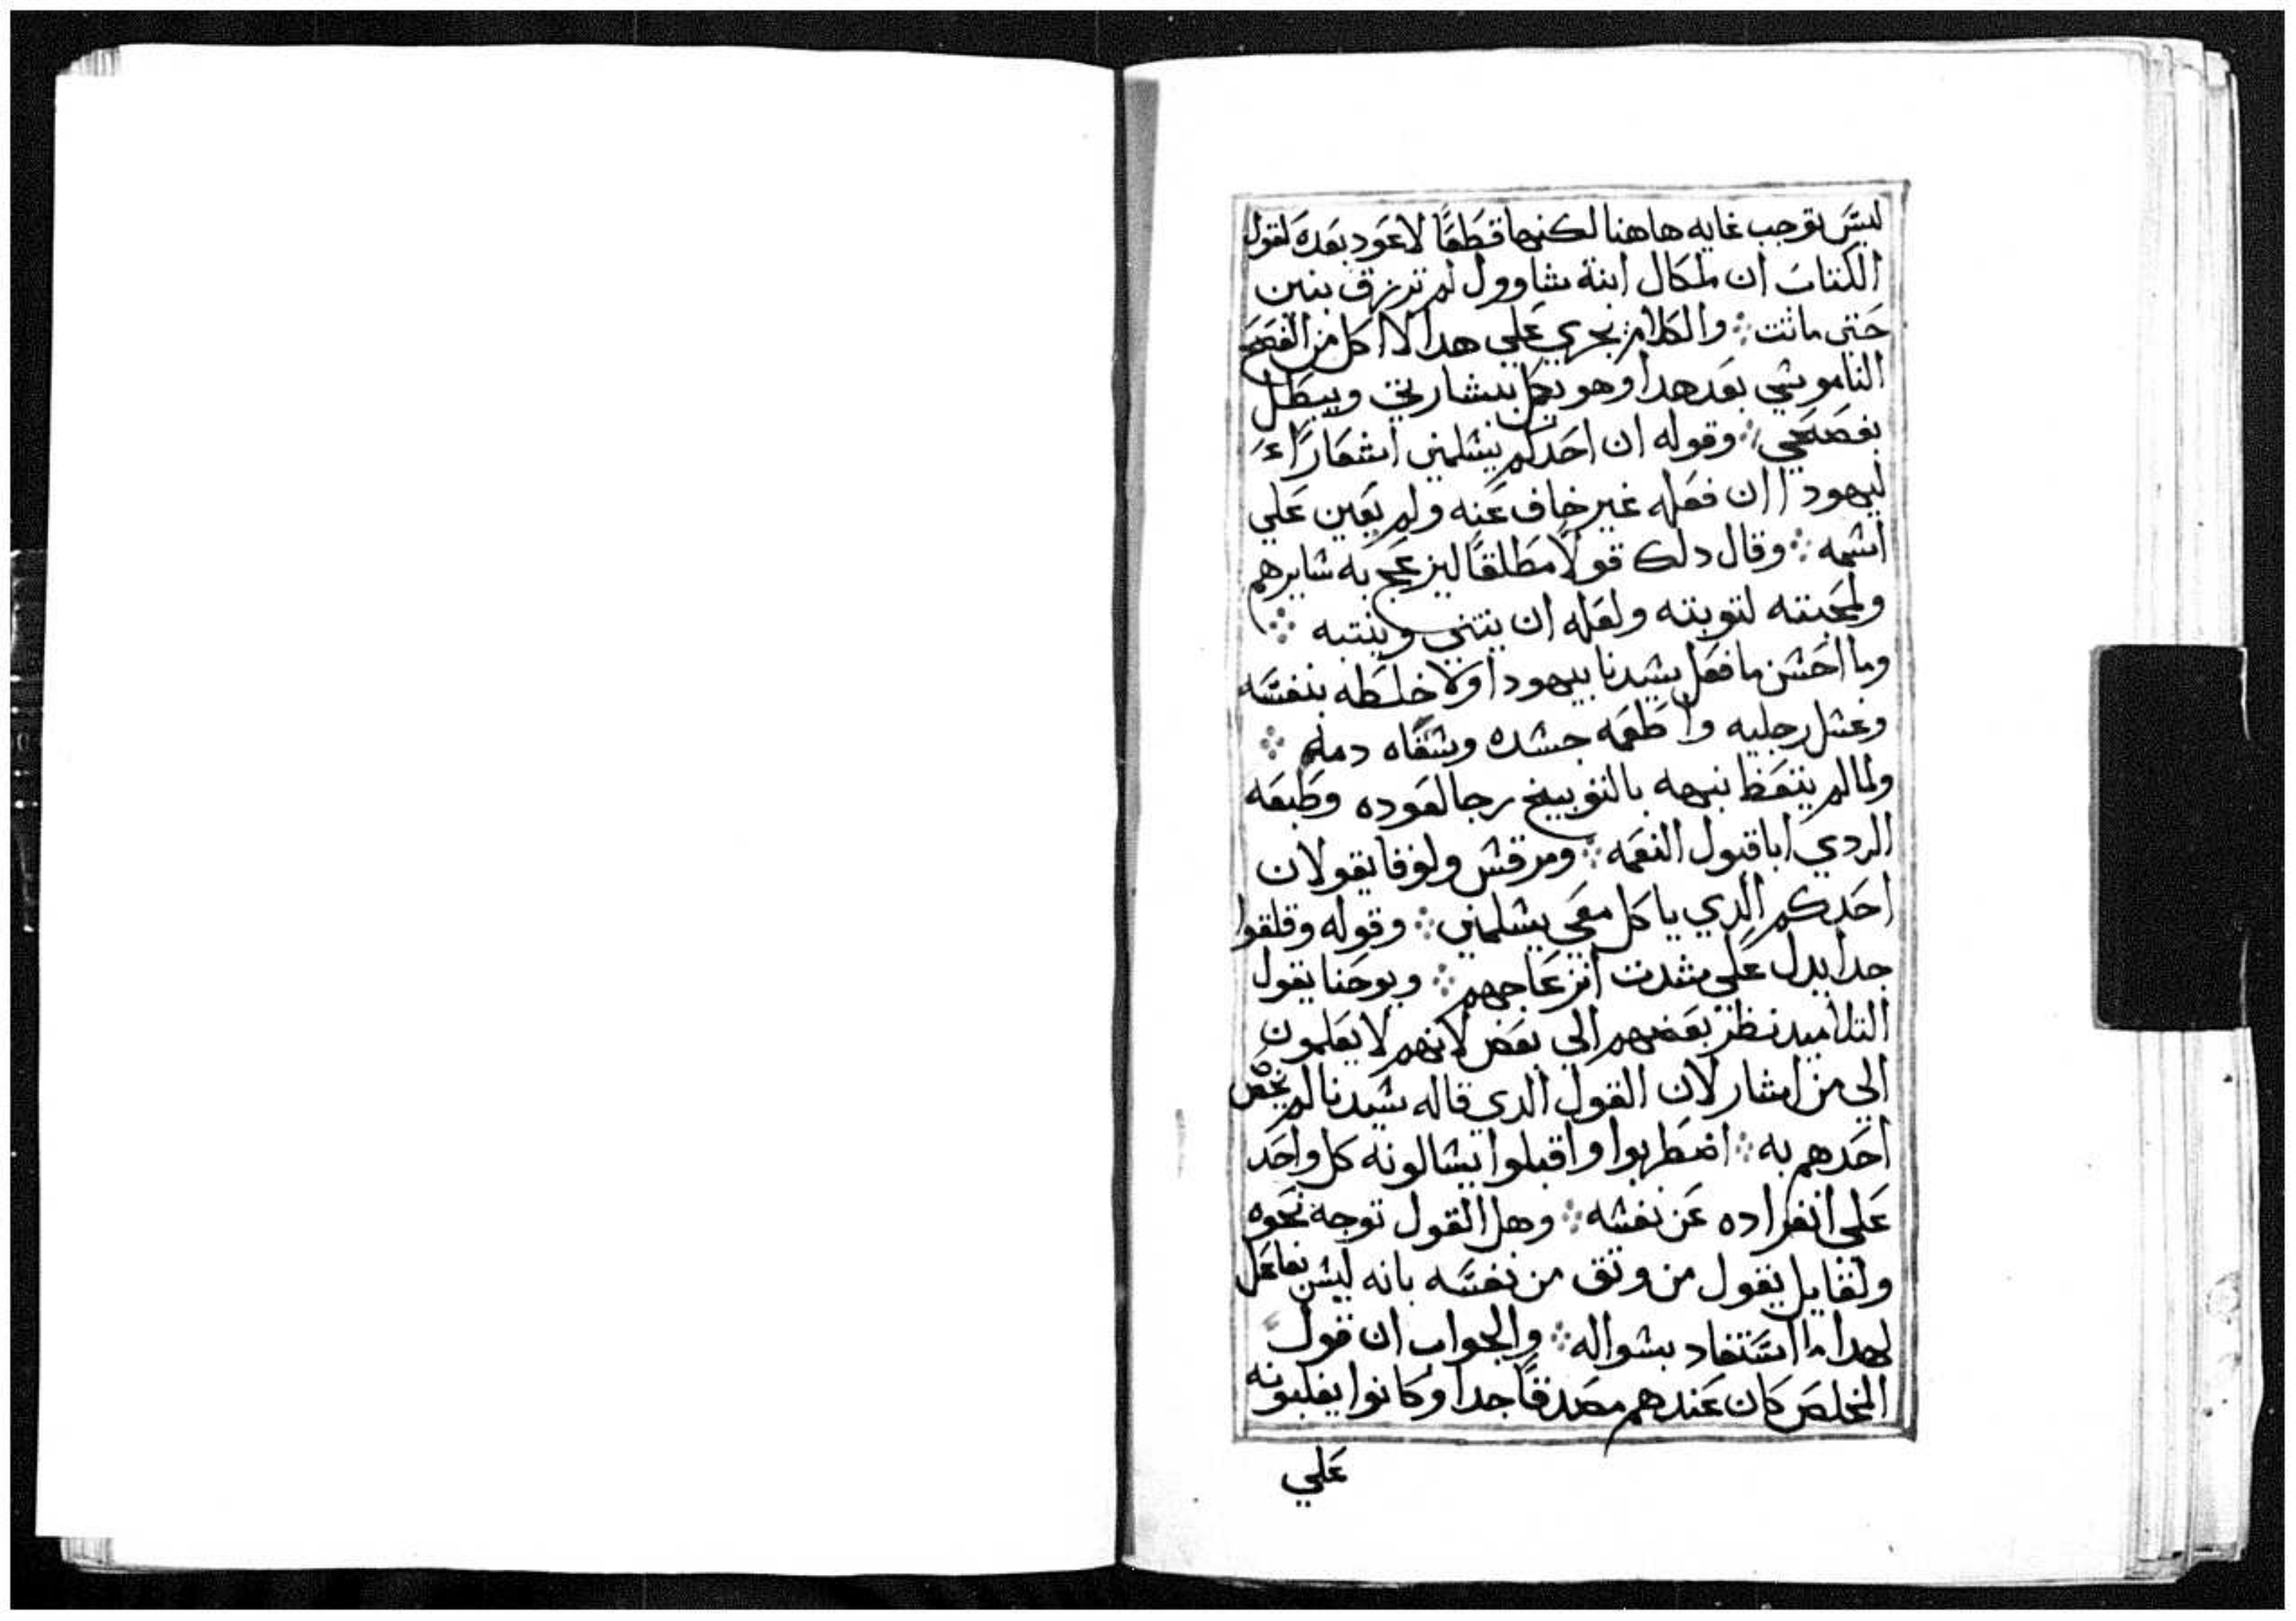 ليس توجب غايه هاهنا لكنها قطعًا لا عود بعده لقول
الكتاب ان ملكال ابنة شاوول لم ترزق بنين
حتى ماتت ؞ والكلام يجري علي هدا لا اكل من الفصح
الناموسي بعد هدا وهو يحل ببشارتي ويبطل
بفصحي ؞ وقوله ان احدكم يسلمني اشعارًاء
ليهودا ان فعله غير خاف عنه ولم يعين علي
اسمه ؞ وقال دلك قولًا مطلقًا لينزعج به سايرهم
ولمحبته لتوبته ولعله ان ينتني وينتبه ؞
وما احسن ما فعل سيدنا بيهودا اولا خلطه بنفسه
وغسل رجليه واطعمه جسده وسقاه دمه ؞
ولما لم يتعظ نبهه بالتوبيخ رجا لعوده وطبعه
الردي ابا قبول النعمه ؞ ومرقس ولوقا يقولان
احدكم الدي ياكل معي يسلمني ؞ وقوله وقلقوا
جدا يدل علي شدت انزعاجهم ؞ ويوحنا يقول
التلاميد نظر بعضهم الي بعض لانهم لا يعلمون
الي من اشار لان القول الدي قاله سيدنا لم يخص
احدهم به ؞ اضطربوا واقبلوا يسالونه كل واحد
علي انفراده عن نفسه ؞ وهل القول توجه نحوه
ولقايل يقول من وثق من نفسه بانه ليس بفاعل
لهدا ما استفاد بسواله ؞ والجواب ان قول
المخلص كان عندهم مصدقًا جدا وكانوا يغلبونه
علي